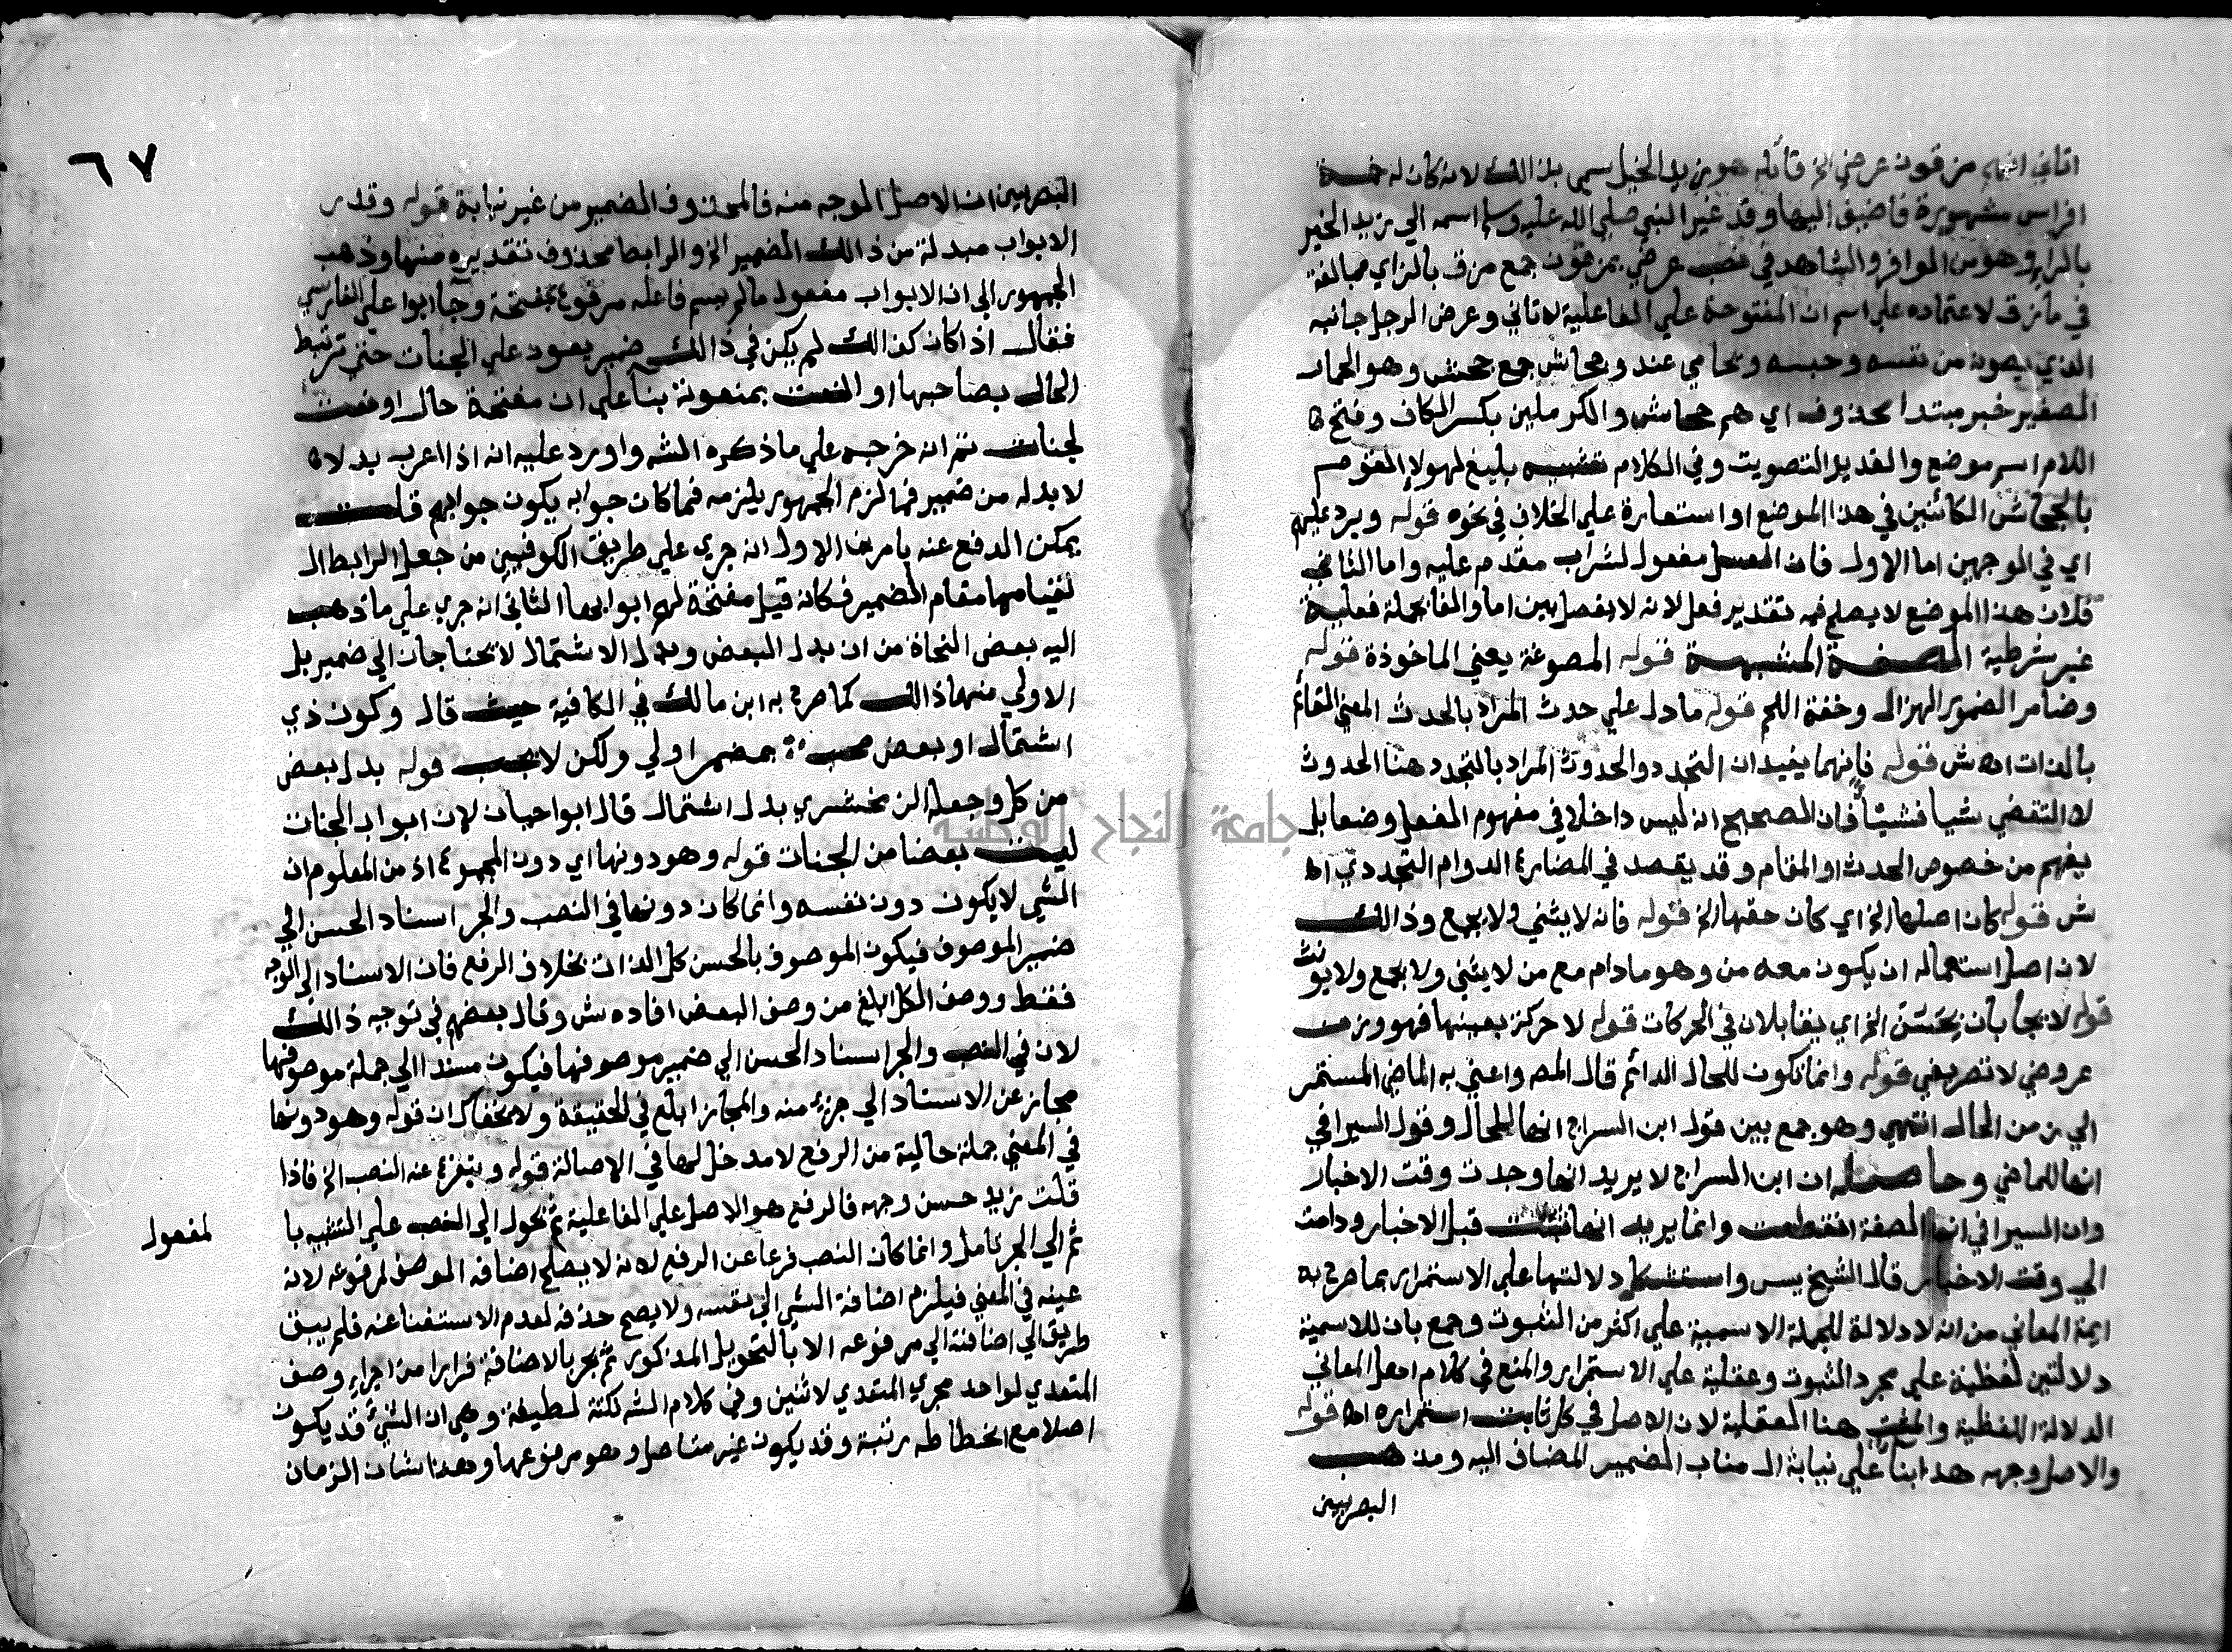 اتاني انهم مزقون عرضي الخ قائله هو زيد الخيل سمي بذالك لانه كان له خمسة
افراس مشهورة فاضيف اليها وقد غير النبي صلي الله عليه وسلم اسمه الي زيد الخير
بالراء وهو من الوافر والشاهد في نصب عرضي بمزقون جمع مزق بالزاي مبالغة
في مازق لاعتماده علي اسم ان المفتوحة علي الفاعلية لاتاني وعرض الرجل جانبه
الذي يصونه من نفسه وحسبه ويحامي عنه وجحاش جمع جحش وهو الحمار
الصغير خبر مبتدا محذوف اي هم جحاش والكرملين بكسر الكاف وفتح
اللام اسم موضع والفديد التصويت وفي الكلام تشبيه بليغ لهولاء القوم
بالجحاش الكائنين في هذا الموضع او استعارة علي الخلاف في نحوه قوله ويرد عليهم
اي في الوجهين اما الاول فان العسل مفعول لشراب مقدم عليه واما الثاني
فلان هذا الموضع لا يصلح فيه تقدير فعل لانه لا يفصل بين اما والفا بجملة فعلية
غير شرطية الصفة المشبهة قوله المصوغة يعني الماخوذة قوله
وضامر الضمور الهزال وخفة اللحم قوله ما دل علي حدث المراد بالحدث المعني القائم
بالذات اه ش قوله فانهما يفيدان التجدد والحدوث المراد بالتجدد هنا الحدوث
لا التقضي شيا فشيئا فان الصحيح انه ليس داخلا في مفهوم الفعل وضعا بل
يفهم من خصوص الحدث او المقام وقد يقصد في المضارع الدوام التجددي اه
ش قوله كان اصلها الخ اي كان حقها الخ قوله فانه لا يثني ولا يجمع وذالك
لان اصل استعماله ان يكون معه من وهو مادام مع من لا يثني ولا يجمع ولا يونث
قوله لا تجا بان يحسن الخ اي يتقابلان في الحركات قوله لا حركة بعينها فهو وزن
عروضي لا تصريفي قوله وانما تكون للحال الدائم قال المص واعني به الماضي المستمر
الي زمن الحال انتهي وهو جمع بين قول ابن السراج انها للحال وقول السيرافي
انها للماضي وحاصله ان ابن السراج لا يريد انها وجدت وقت الاخبار
وان السيرافي انها الصفة انقطعت وانما يريد انها ثبتت قبل الاخبار ودامت
الي وقت الاخبار قال الشيخ يس واستشكل دلالتها علي الاستمرار بما صرح به
ايمة المعاني من انه لا دلالة للجملة الاسمية علي اكثر من الثبوت وجمع بان للاسمية
دلالتين لفظية علي مجرد الثبوت وعقلية علي الاستمرار والمنع في كلام اهل المعاني
الدلالة اللفظية والمثبت هنا العقلية لان الاصل في كل ثابت استمراره اه قوله
والاصل وجهه هذا بنا علي نيابة ال مناب الضمير المضاف اليه ومذهب
البصريين
٦٧
البصريين ان الاصل الوجه منه فالمحذوف الضمير من غير نيابة قوله وقدر
الابواب مبدلة من ذالك الضمير الخ والرابط محذوف تقديره منها وذهب
الجمهور الي ان الابواب مفعول مالم يسم فاعله مرفوع بمفتحة وجاابوا علي الفارسي
فقال اذا كان كذالك لم يكن في ذالك ضمير يعود علي الجنات حتي ترتبط
الحال بصاحبها او النعت بمنعوته بنا علي ان مفتحة حال او نعت
لجنات ثم انه خرجه علي ما ذكره الشه واورد عليه انه اذا اعرب بدلا
لا بد له من ضمير فما لزم الجمهور يلزمه فما كان جوابه يكون جوابهم قلت
يمكن الدفع عنه بامرين الاول انه جري علي طريق الكوفيين من جعل الرابط ال
لقيامها مقام الضمير فكانه قيل مفتحة لهم ابوابها الثاني انه جري علي ما ذهب
اليه بعض النحاة من ان بدل البعض وبدل الاشتمال لا يحتاجان الي ضمير بل
الاولي منهما ذالك كما صرح به ابن مالك في الكافية حيث قال وكون ذي
اشتمال او بعض صحبه بمضمر اولي ولكن لا يجب قوله بدل بعض
من كل وجعله الزمخشري بدل اشتمال قال ابوا حيان لان ابواب الجنات
ليست بعضا من الجنات قوله وهو دونها اي دون المجموع اذ من المعلوم ان
الشي لا يكون دون نفسه وانما كان دونها في النصب والجر اسناد الحسن الي
ضمير الموصوف فيكون الموصوف بالحسن كل الذات بخلاف الرفع فان الاسناد الي الوجه
فقط ووصف الكل ابلغ من وصف البعض افاده ش وقال بعضهم في توجه ذالك
لان في النصب والجر اسناد الحسن الي ضمير موصوفها فيكون مسندا الي جملة موصوفها
مجاز عن الاسناد الي جزء منه والمجاز ابلغ في الحقيقة ولا يخفاك ان قوله وهو دونها
في المعني جملة حالية من الرفع لا مدخل لها في الاصالة قوله ويتفرع عنه النصب الخ فاذا
قلت زيد حسن وجهه فالرفع هو الاصل علي الفاعلية ثم يحول الي النصب علي التشبيه با
لمفعول
ثم الي الجر تامل وانما كان النصب فرعا عن الرفع لانه لا يصلح اضافة الوصف لمرفوعه لانه
عينه في المعني فيلزم اضافة الشي الي نفسه ولا يصح حذفه لعدم الاستغنا عنه فلم يبق
طريق الي اضافته الي مرفوعه الا بالتحويل المذكور ثم يجر بالاضافة فرارا من اجراء وصف
المتعدي لواحد مجري المتعدي لاثنين وفي كلام الشه نكتة لطيفة وهي ان الشي قد يكون
اصلا مع انحطاطه رتبة وقد يكون غير متاصل وهو مرفوعها وهذا شان الزمان